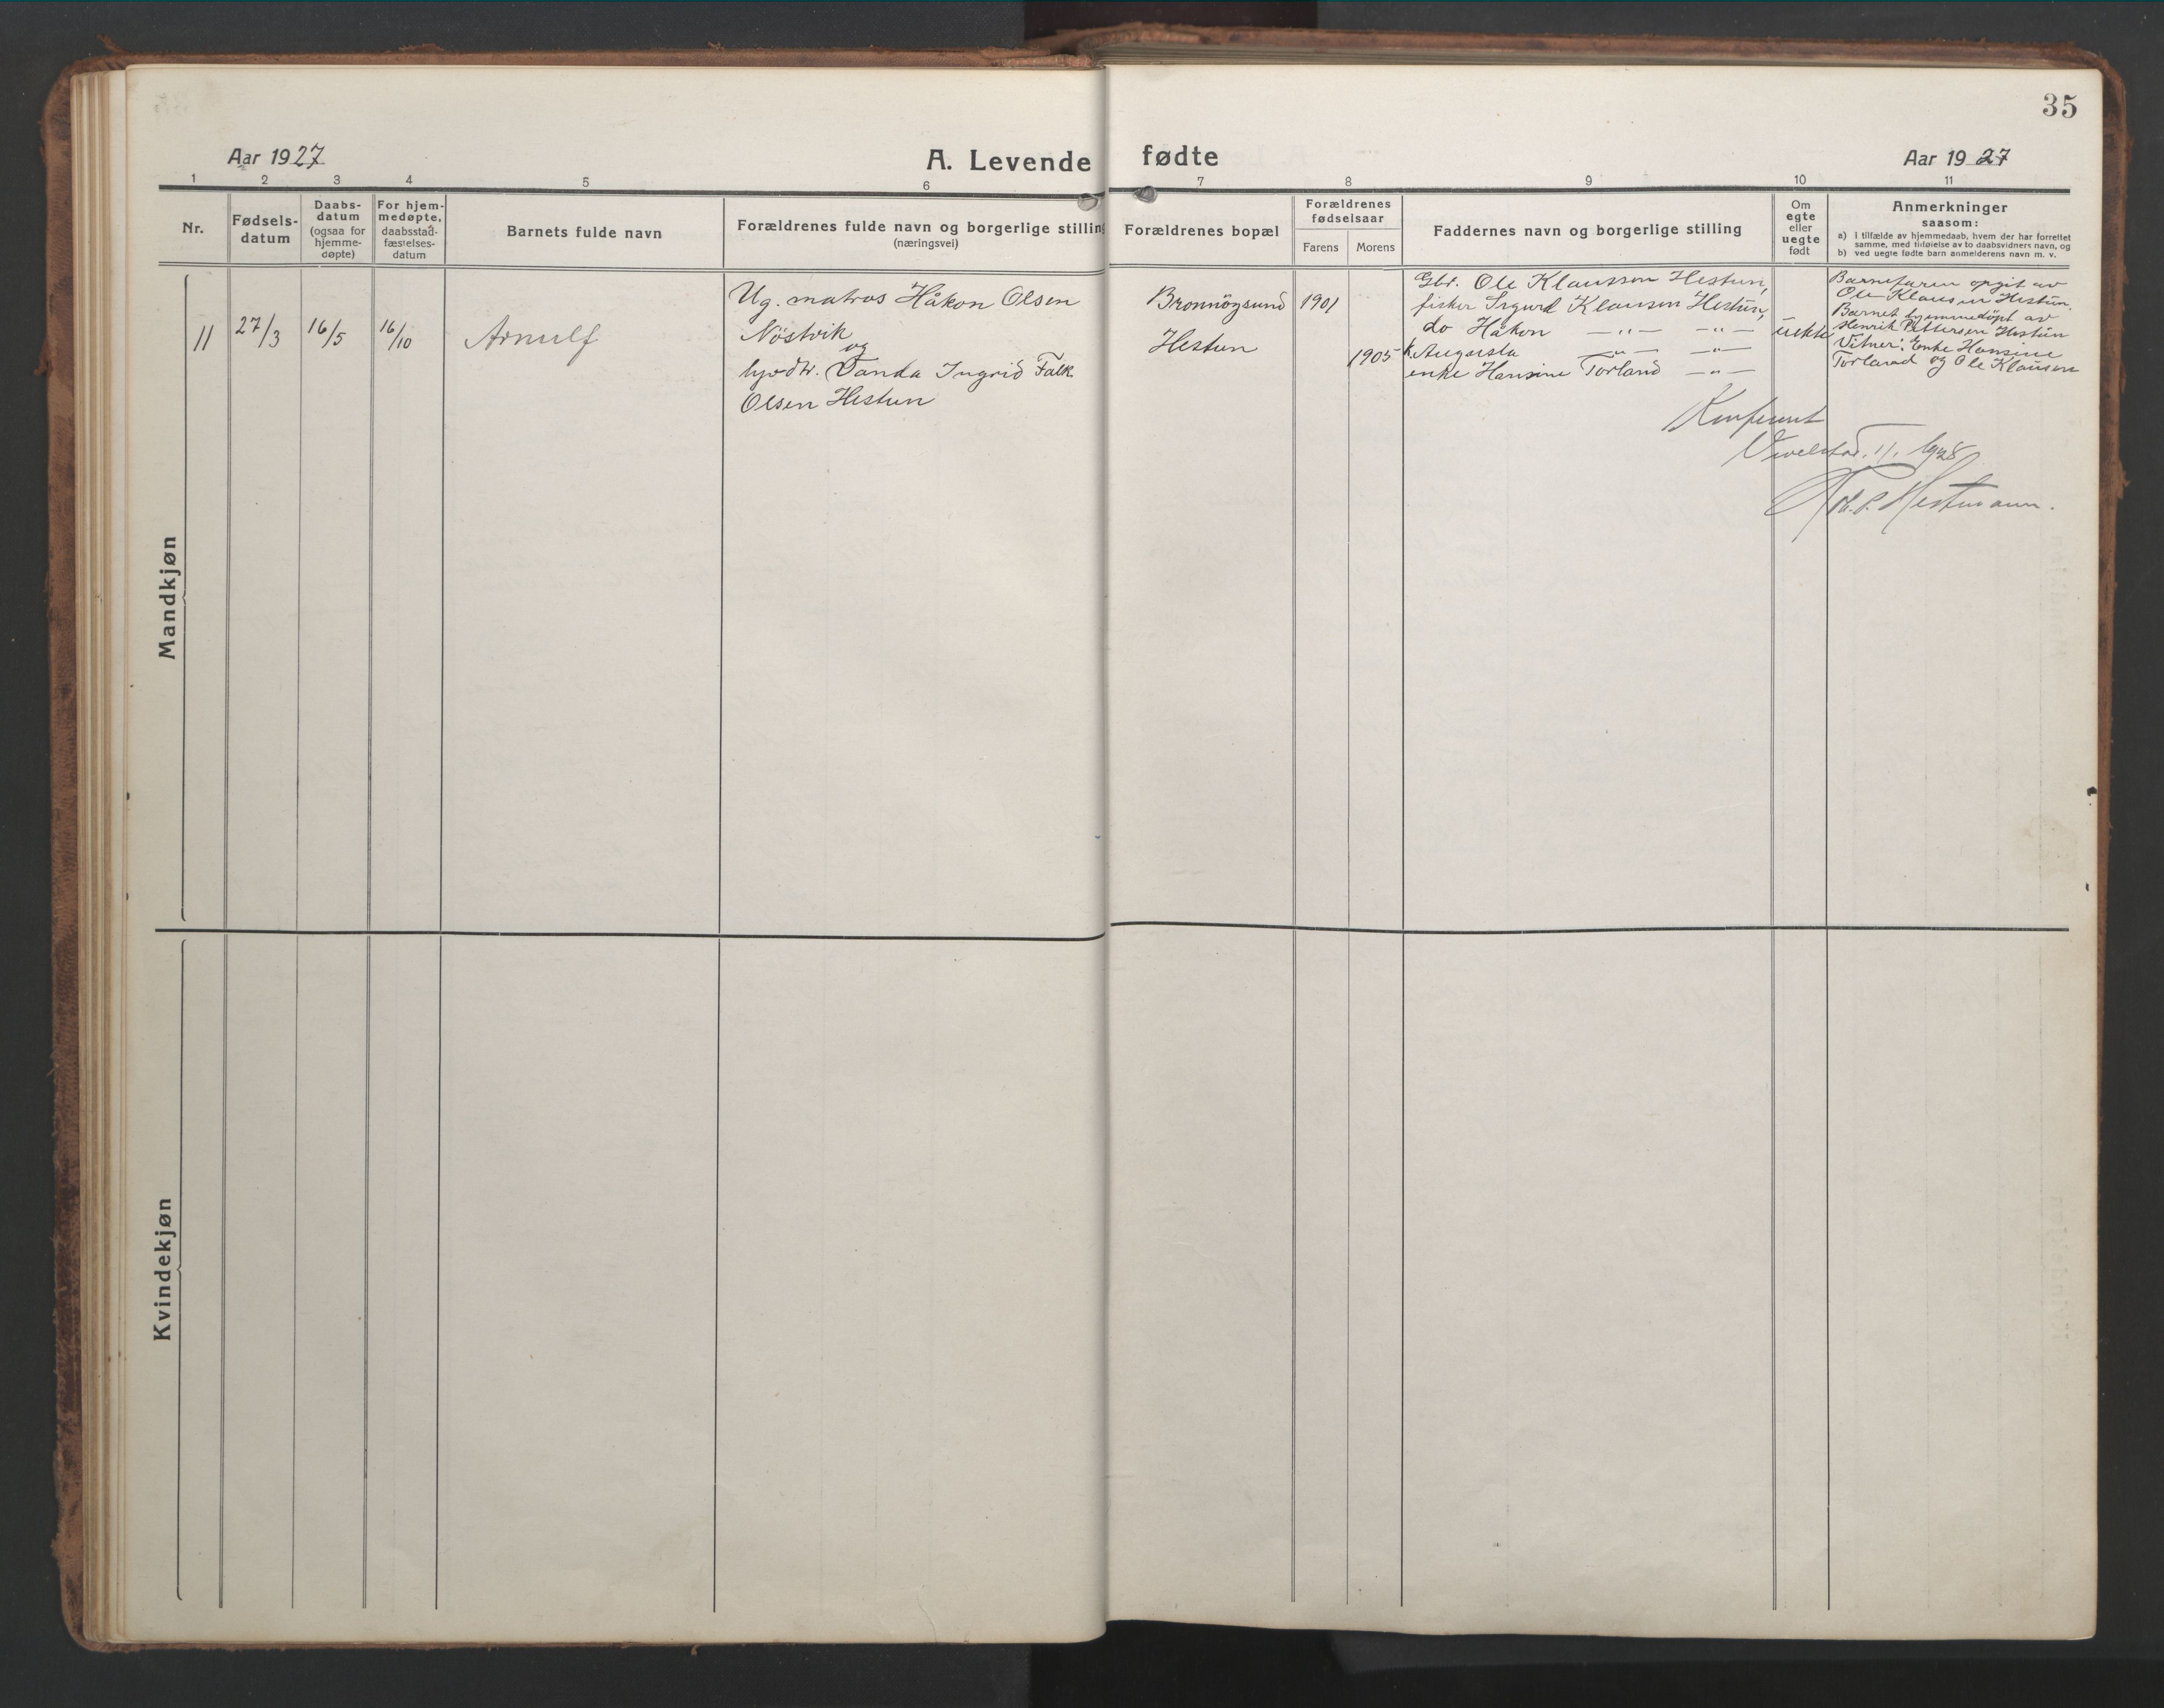 35
Aar 1927
A. Levende fødte
Aar 1927
1 2 3 4 5 6 7 8 9 10 11
Nr.
Fødsels-
datum
Daabs-
datum
(ogsaa for
hjemme-
døpte)
For hjem-
medøpte,
daabsstad-
fæstelses-
datum
Barnets fulde navn
Forældrenes fulde navn og borgerlige stilling
(næringsvei)
Forældrenes bopæl
Forældrenes
fødselsaar
Farens Morens
Faddernes navn og borgerlige stilling
Om
egte
eller
uegte
født
Anmerkninger
saasom:
a) i tilfælde av hjemmedaab, hvem der har forrettet
samme, med tilføielse av to daabsvidners navn, og
b) ved uegte fødte barn anmelderens navn m. v.
Mandkjøn
11
27/3
16/5
16/10
Arnulf
Ug. matros Håkon Olsen
Nöstvik
og
Vanda Ingrid Falk
Olsen Hestun
Bronnöysund
Hestun
1901
1905
Gbr. Ole Klausson Hestun,
fisker Sigurd Klausen Hestun,
do Håkon —"— —"—
k. Augusta —"— —"—
enke Hansine Torland —"—
uekte
Barnefaren opgit av
Ole Klausen Hestun.
Barnet hjemmedöpt av
Henrik Pettersen Hestun
Vitner: Enke Hansine
Torland og Ole Klausen
Konferert
Vevelstad 1/1 1928
P. Hestmann.
Kvindekjøn